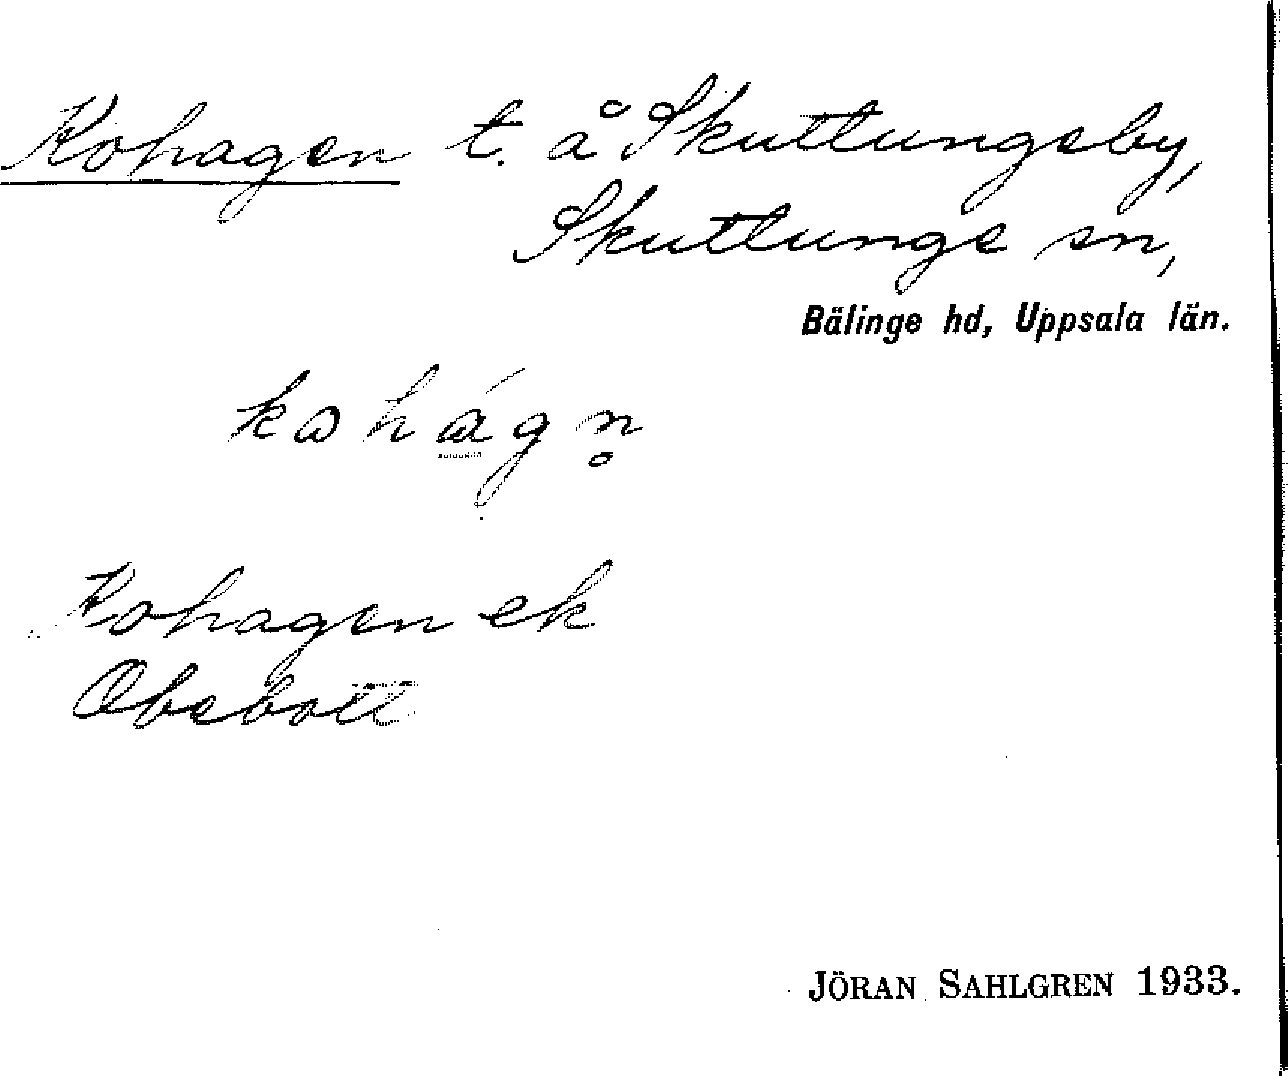 Kohagen t. å Skuttungeby,
Skuttunge sn,
Bälinge hd, Uppsala län.
Kohagen ek
JÖRAN SAHLGREN 1933.